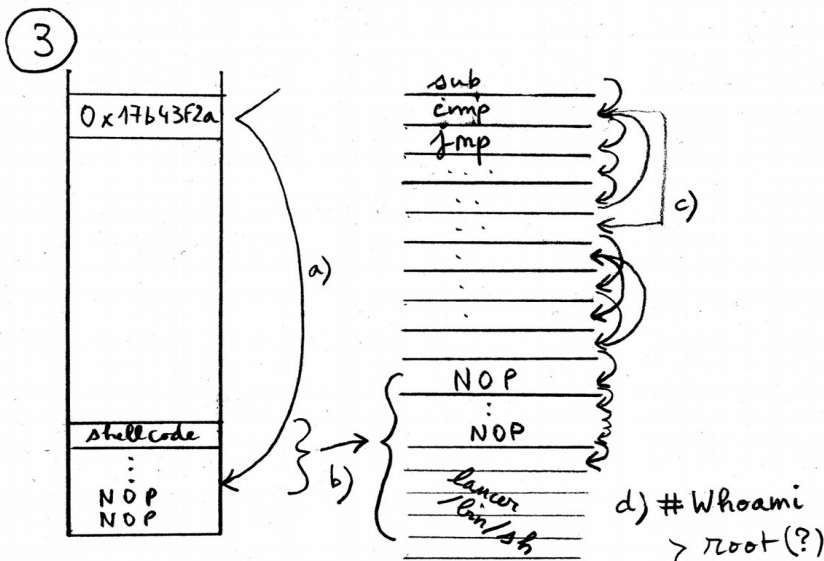 3
0x17b43f2a
a)
shellcode
⋮
NOP
NOP
b)
sub
cmp
jmp
. . .
. .
. .
.
.
NOP
⋮
NOP
lancer
/bin/sh
c)
d) # Whoami
> root (?)